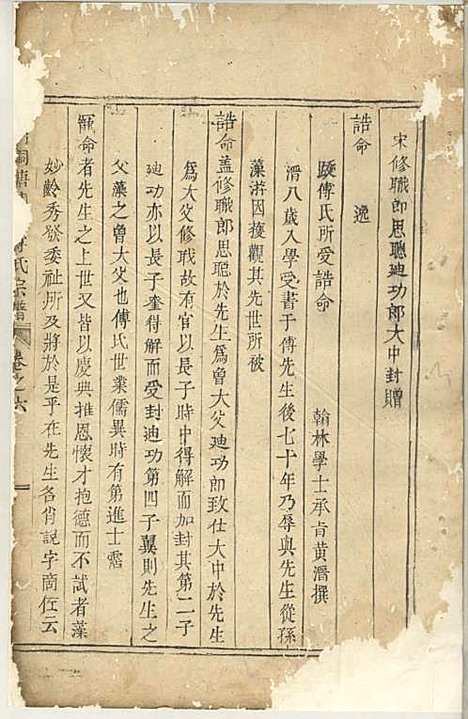 宋修職郎思聰迪功郎大中封贈
誥命  逸
跋傅氏所受誥命  翰林學士承旨黃溍撰
溍八歲入學受書于傅先生後七十年乃辱與先生從孫
藻游因獲觀其先世所被
誥命蓋修職郎思聰於先生爲曾大父迪功郎致仕大中於先生
爲大父修職故有官以長子時中得解而加封其第二子
迪功亦以長子奎得解而受封迪功第四子翼則先生之
父藻之曾大父也傅氏世業儒異時有第進士霑
寵命者先生之上世又皆以慶典推恩懷才抱德而不試者藻
妙齡秀發委祉所及將於是乎在先生名肖說字商佐云
氏宗譜 卷之六